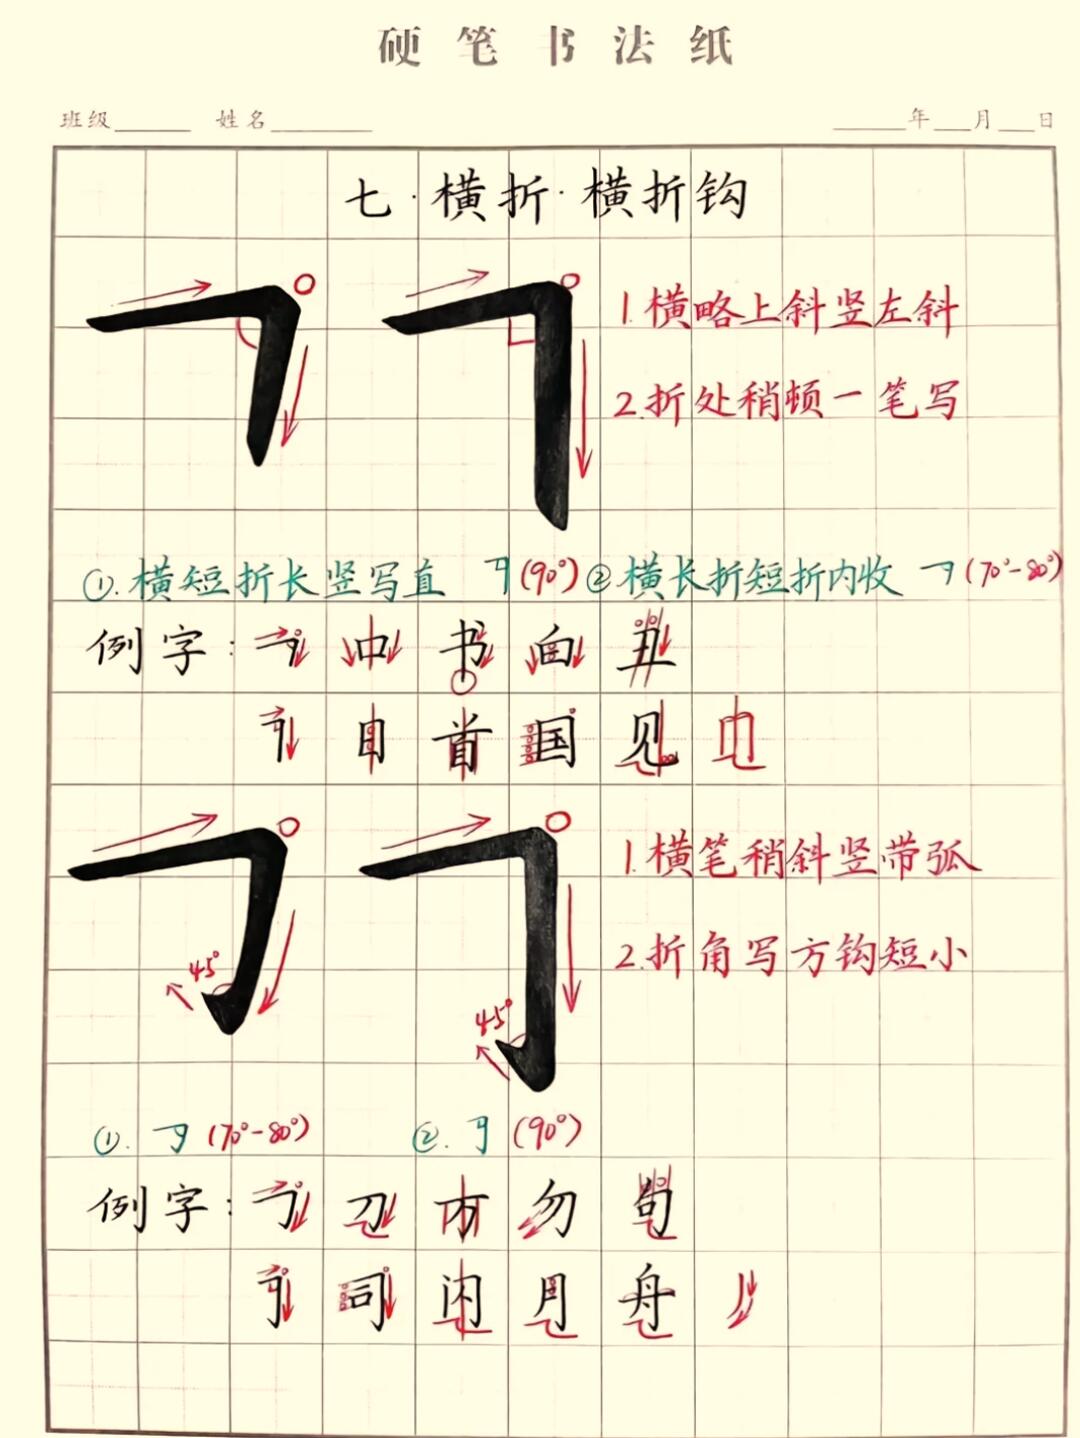 硬笔书法纸
班级 姓名 年 月 日
七·横折·横折钩
1.横略上斜竖左斜
2.折处稍顿一笔写
①.横短折长竖写直 𠃍(90°) ②横长折短折内收 𠃍(70°-80°)
例字: 𠃍 中 书 白 丑
𠃍 目 首 国 见
1.横笔稍斜竖带弧
2.折角写方钩短小
45°
45°
①. 𠃌 (70°-80°) ②. 𠃌 (90°)
例字: 𠃌 刀 方 勿 句
𠃌 司 闲 月 舟